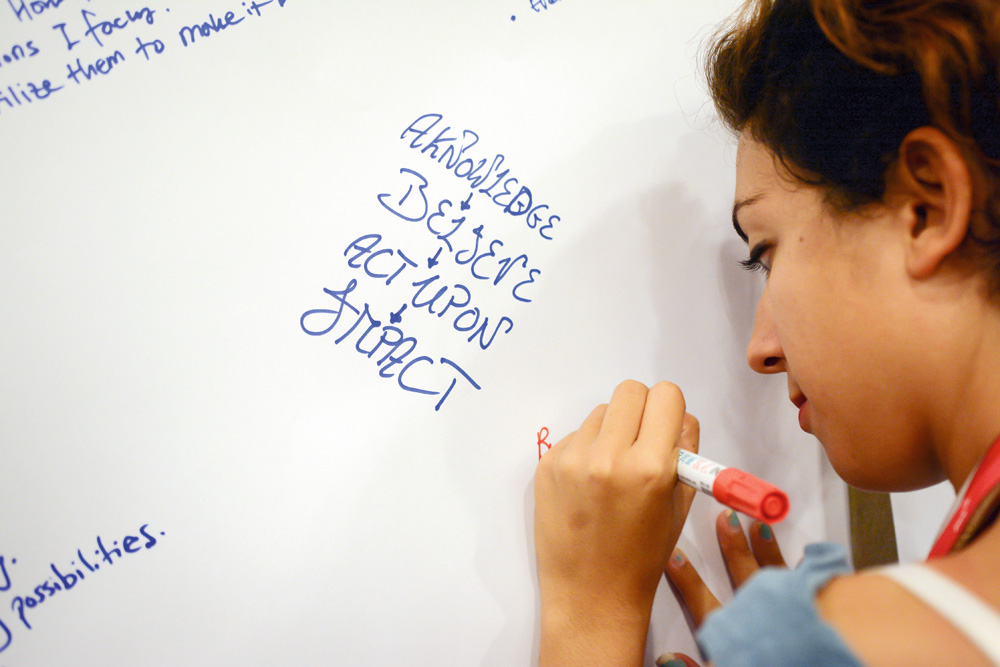 ons I focus.
ilize them to make it
AKNOWLEDGE
BELIEVE
ACT UPON
IMPACT
R
possibilities.